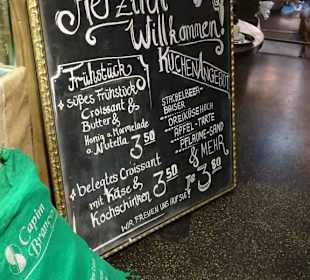 Herzlich
Willkommen!
Frühstück
• süßes Frühstück
Croissant &
Butter &
Honig o. Marmelade
o. Nutella 3 50
• belegtes Croissant
mit Käse & 3 50
Kochschinken
KUCHENANGEBOT
STACHELBEER-
BAISER
...DREIKÄSEHOCH
...APFEL-TARTE
...PFLAUME-SAND
& MEHR
je 3 80
WIR FREUEN UNS AUF SIE
Capim
Branco